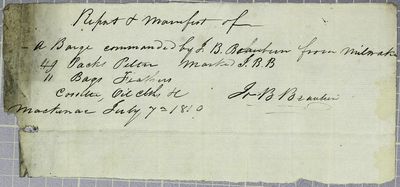 Report & Manifest of
a Barge commanded by J. B. Beaubien from Milwakie
49 Packs Peltry Marked J. B B
11 Bags Feathers
Mackinac July 7th 18
Jn B Beaubien